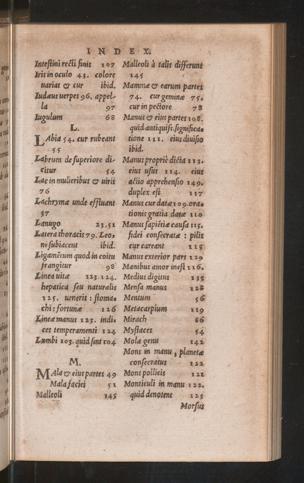 INDEX.
Intestini recti finis 107
Iris in oculo 43. colore
variat & cur ibid.
Iudæus verpes 96. appel-
la 97
Iugulum 68
L.
LAbia 54. cur rubeant
55
Labrum de superiore di-
citur 54
Lac in mulieribus & viris
76
Lachrymæ unde effluant
57
Lanugo 23.51
Latera thoracis 79. Leo-
ni subiacent ibid.
Ligamẽtum quod in coitu
frangitur 98
Linea vitæ 123.124.
hepatica seu naturalis
125. veneris: stoma-
chi: fortunæ 126
Linea manus 123. indi-
cet temperamenti 124
Lumbi 103. quid sint 104
M.
MAla & eius partes 49
Mala faciei 51
Malleoli 145
Malleoli à talis differunt
145
Mammæ & earum partes
74. cur geminæ 75.
cur in pectore 78
Manus & eius partes 108.
quid antiquis. significa-
tione 111. eius divisio
ibid.
Manus propriè dicta 113.
eius usus 114. eius
actio apprehensio 149.
duplex est 117
Manus cur datæ 109. ora-
tionis gratia datæ 110
Manus sapiẽtiæ causa 115.
fidei consecratæ: pilis
cur careant 115
Manus exterior pars 129
Manibus amor inest 116.
Medius digitus 135
Mensa manus 128
Mentum 56
Metacarpium 119
Mirach 86
Mystaces 54
Mola genu 142
Mons in manu, planetæ
consecratus 122
Mons pollicis 121
Monticuli in manu 122.
quid denotent 125
Morsus